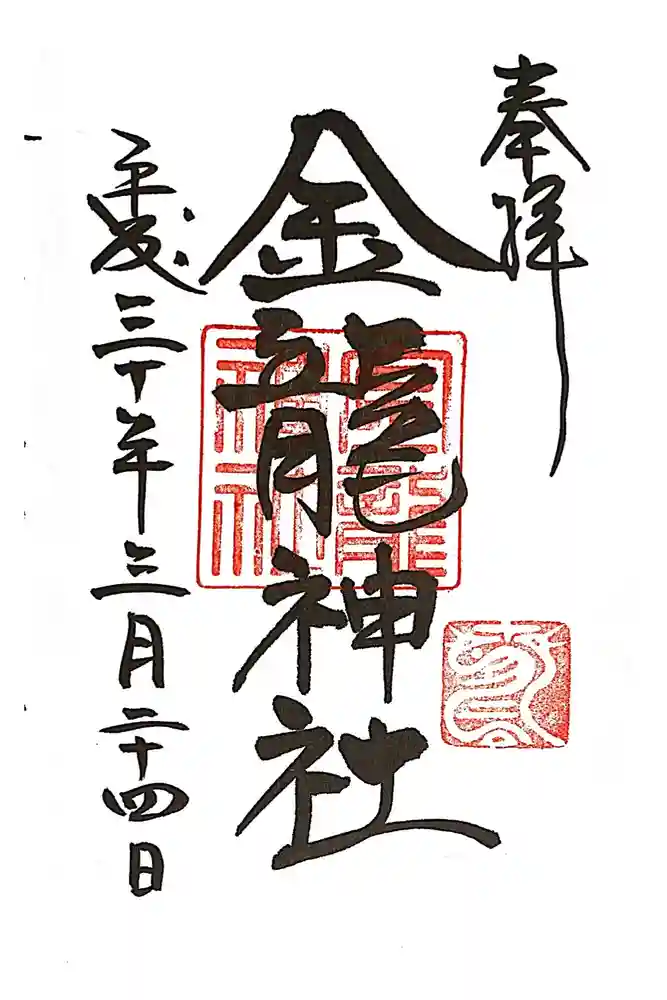 奉拝
金龍神社
平成三十年三月二十四日
金龍
神社